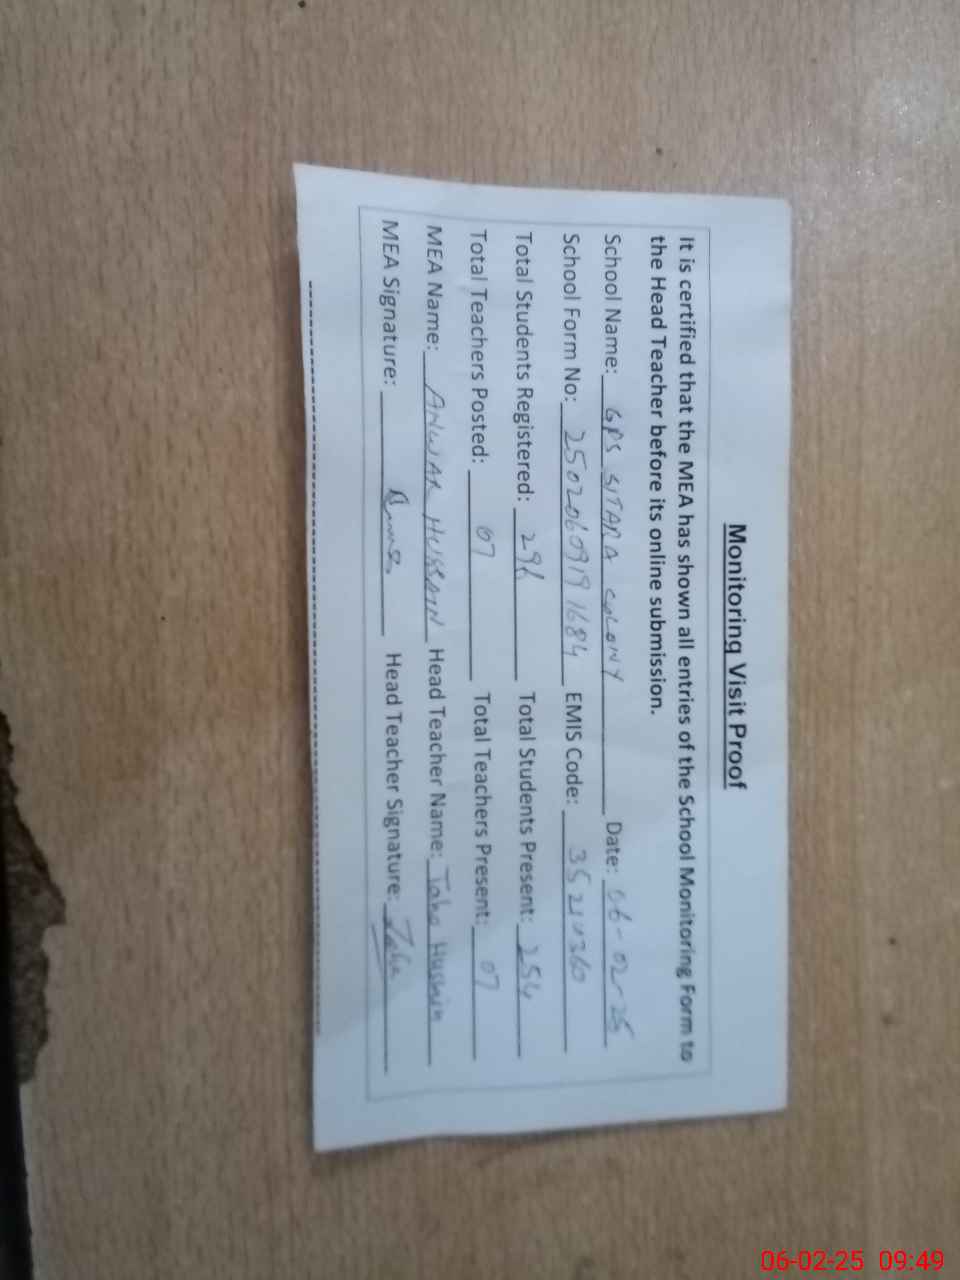 Monitoring Visit Proof
It is certified that the MEA has shown all entries of the School Monitoring Form to
the Head Teacher before its online submission.
School Name: GPS SITARA COLONY Date: 06-02-25
School Form No: 2502060919 1684 EMIS Code: 35210360
Total Students Registered: Total Students Present: 254
Total Teachers Posted: 07 Total Teachers Present: 07
MEA Name: ANWAR HUSSAIN Head Teacher Name: Taha Hussain
MEA Signature: Head Teacher Signature: Taha
06-02-25 09:49